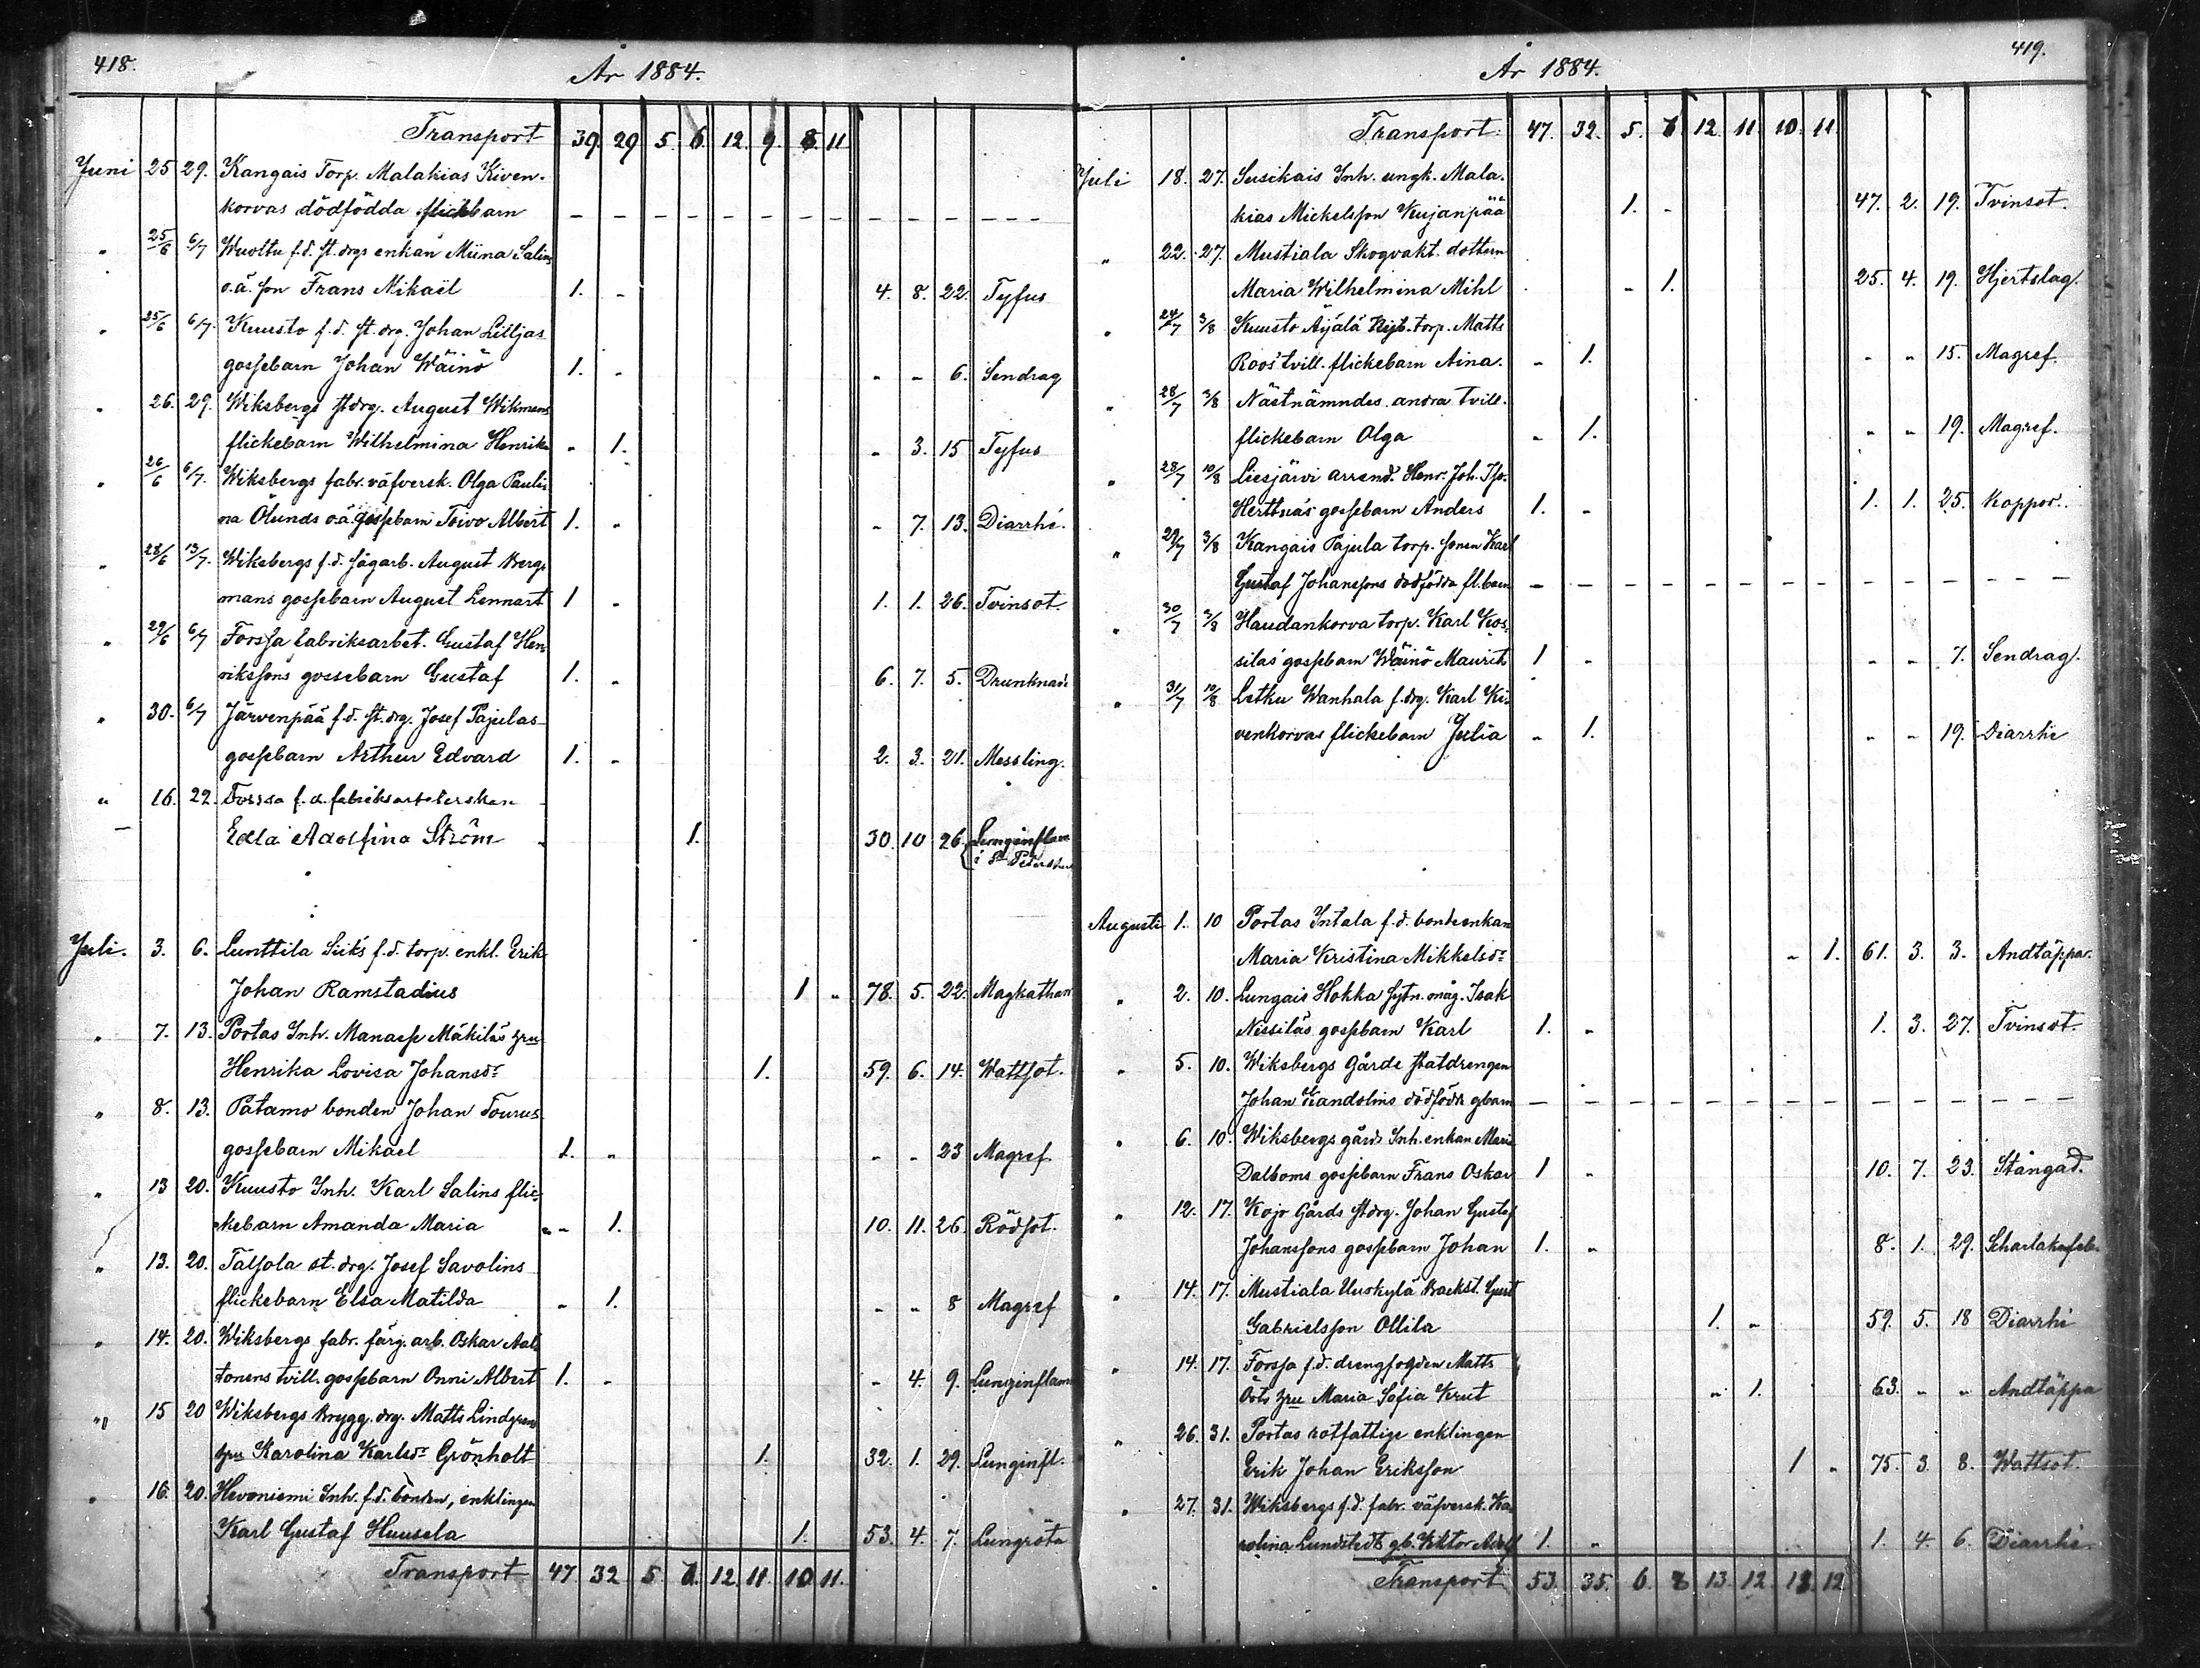 418.
År 1884.
Transport 39 29 5. 6. 12. 9. 8. 11
Juni 25 29. Kangais Torp. Malakias Kiven-
korvas dödfödda flickbarn – – – – – – – – – – – –
" 25/6 6/7 Wuoltu f.d. st. drgs enkan Miina Salins
o.ä. son Frans Mikaël 1. - 4. 8. 22. Tyfus
" 25/6 6/7. Kuusto f.d. st. drg. Johan Liljas
gossebarn Johan Wäinö 1. - - - 6. Sendrag
" 26. 29. Wiksbergs stdrg. August Wikmans
flickebarn Wilhelmina Henrika - 1. - 3. 15 Tyfus
" 26/6 6/7. Wiksbergs fabr. väfversk. Olga Pauli-
na Ölunds o.ä. gossebarn Toivo Albert 1. - - 7. 13. Diarrhé.
" 28/6 13/7. Wiksbergs f.d. sågarb. August Berg-
mans gossebarn August Lennart 1 - 1. 1. 26. Tvinsot.
" 29/6 6/7 Forssa fabriksarbet. Gustaf Hen-
rikssons gossebarn Gustaf 1. - 6. 7. 5. Drunknade
" 30. 6/7 Järvenpää f.d. st. drg. Josef Pajulas
gossebarn Arthur Edvard 1. - 2. 3. 21. Messling.
" 16. 22. Forssa f.d. fabriksarbeterskan
Edla Adolfina Ström - 1. 30. 10 26. Lunginflam
i St Petersbur
Juli. 3. 6. Lunttila Siiks f.d. torp. enkl. Erik
Johan Ramstadius 1 - 78. 5. 22. Magkatharr
" 7. 13. Portas Inh. Manasse Mäkiläs hru
Henrika Lovisa Johansdr 1. 59. 6. 14. Wattsot.
" 8. 13. Patamo bonden Johan Tourus
gossebarn Mikael 1. - - - 23 Magref
" 13 20. Kuusto Inh. Karl Salins flic-
kebarn Amanda Maria - 1. 10. 11. 26. Rödsot.
" 13. 20. Talsola st. drg. Josef Savolins
flickebarn Elsa Matilda - 1. - - 8 Magref
" 14. 20. Wiksbergs fabr. färg. arb. Oskar Aal-
tonens tvill. gossebarn Onni Albert 1. - - 4. 9. Lunginflam
" 15 20 Wiksbergs Brygg. drg. Matts Lindgrens
hru Karolina Karlsdr Grönholt 1. 32. 1. 29. Lunginfl.
" 16. 20. Hevoniemi Inh. f.d. bonden, enklingen
Karl Gustaf Huusela 1. 53. 4. 7. Lungröta
Transport 47 32 5. 6. 12. 11. 10 11.
419.
År 1884.
Transport 47. 32. 5. 6. 12. 11. 10. 11.
Juli 18. 27. Susikais Inh. ungk. Mala-
kias Mickelsson Kujanpää 1. - 47. 2. 19. Tvinsot.
" 22. 27. Mustiala Skogvakt. dottern
Maria Wilhelmina Mihl - 1. 25. 4. 19. Hjertslag.
" 24/7 3/8 Kuusto Äijälä Nyb. torp. Matts
Roos tvill. flickebarn Aina. - 1. - - 15. Magref.
" 28/7 3/8 Nästnämndes andra tvill.
flickebarn Olga - 1. - - 19. Magref.
" 28/7 10/8 Liesjärvi arrend. Henr. Joh. Iso-
Herttuas gossebarn Anders 1. - 1. 1. 25. Koppor.
" 29/7 3/8 Kangais Pajula torp. sonen Karl
Gustaf Johanssons dödfödda fl.barn – – – – – – – – – – – –
" 30/7 3/8 Haudankorva torp. Karl Kos-
silas gossebarn Wäinö Maurits 1 - - - 7. Sendrag.
" 31/7 10/8 Letku Wanhala f.drg. Karl Ki-
venkorvas flickebarn Julia - 1. - - 19. Diarrhé
Augusti 1. 10 Portas Intala f.d. bondeenkan
Maria Kristina Mikkelsdr - 1. 61. 3. 3. Andtäppa.
" 2. 10. Lungais Hokka sytn. måg. Isak
Nissiläs gossebarn Karl 1. - 1. 3. 27. Tvinsot.
" 5. 10. Wiksbergs Gårds statdrengen
Johan Kandolins dödfödda gbarn – – – – – – – – – – – –
" 6. 10. Wiksbergs gårds Inh. enkan Maria
Dalboms gossebarn Frans Oskar 1 - 10. 7. 23. Stångad.
" 12. 17. Kojo Gårds stdrg. Johan Gustaf
Johanssons gossebarn Johan 1. - 8. 1. 29. Scharlakafeb.
" 14. 17. Mustiala Uuskylä Backst. Gust
Gabrielsson Ollila 1. - 59. 5. 18 Diarrhé
" 14. 17. Forssa f.d. drengfogden Matts
hru Maria Sofia Krut - 1. 63. - - Andtäppa
" 26. 31. Portas rotfattige enklingen
Erik Johan Eriksson 1 - 75. 3. 8. Wattsot.
" 27. 31. Wiksbergs f.d. fabr. väfversk. Ka-
rolina Lundstedts gb. Viktor Adolf 1. - 1. 4. 6. Diarrhé.
Transport 53. 35. 6. 13. 12. 12